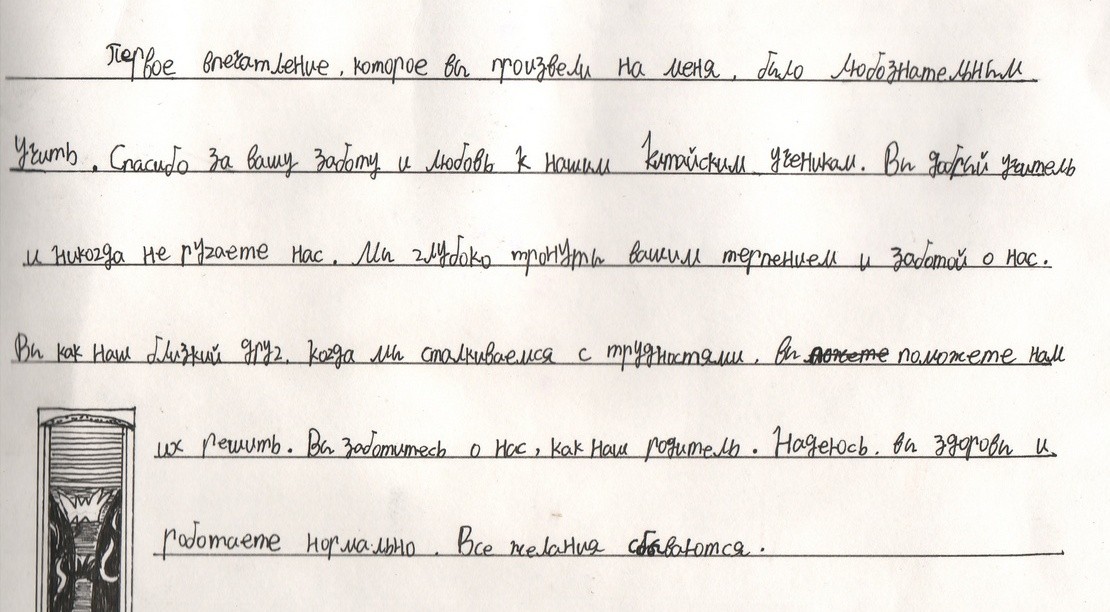 Первое впечатление, которое вы произвели на меня, было любознательным
учить. Спасибо за вашу заботу и любовь к нашим китайским ученикам. Вы добрый учитель
и никогда не ругаете нас. Мы глубоко тронуты вашим терпением и заботой о нас.
Вы как наш близкий друг. Когда мы сталкиваемся с трудностями, вы поможете нам
их решить. Вы заботитесь о нас, как наш родитель. Надеюсь, вы здоровы и
работаете нормально. Все желания сбываются.